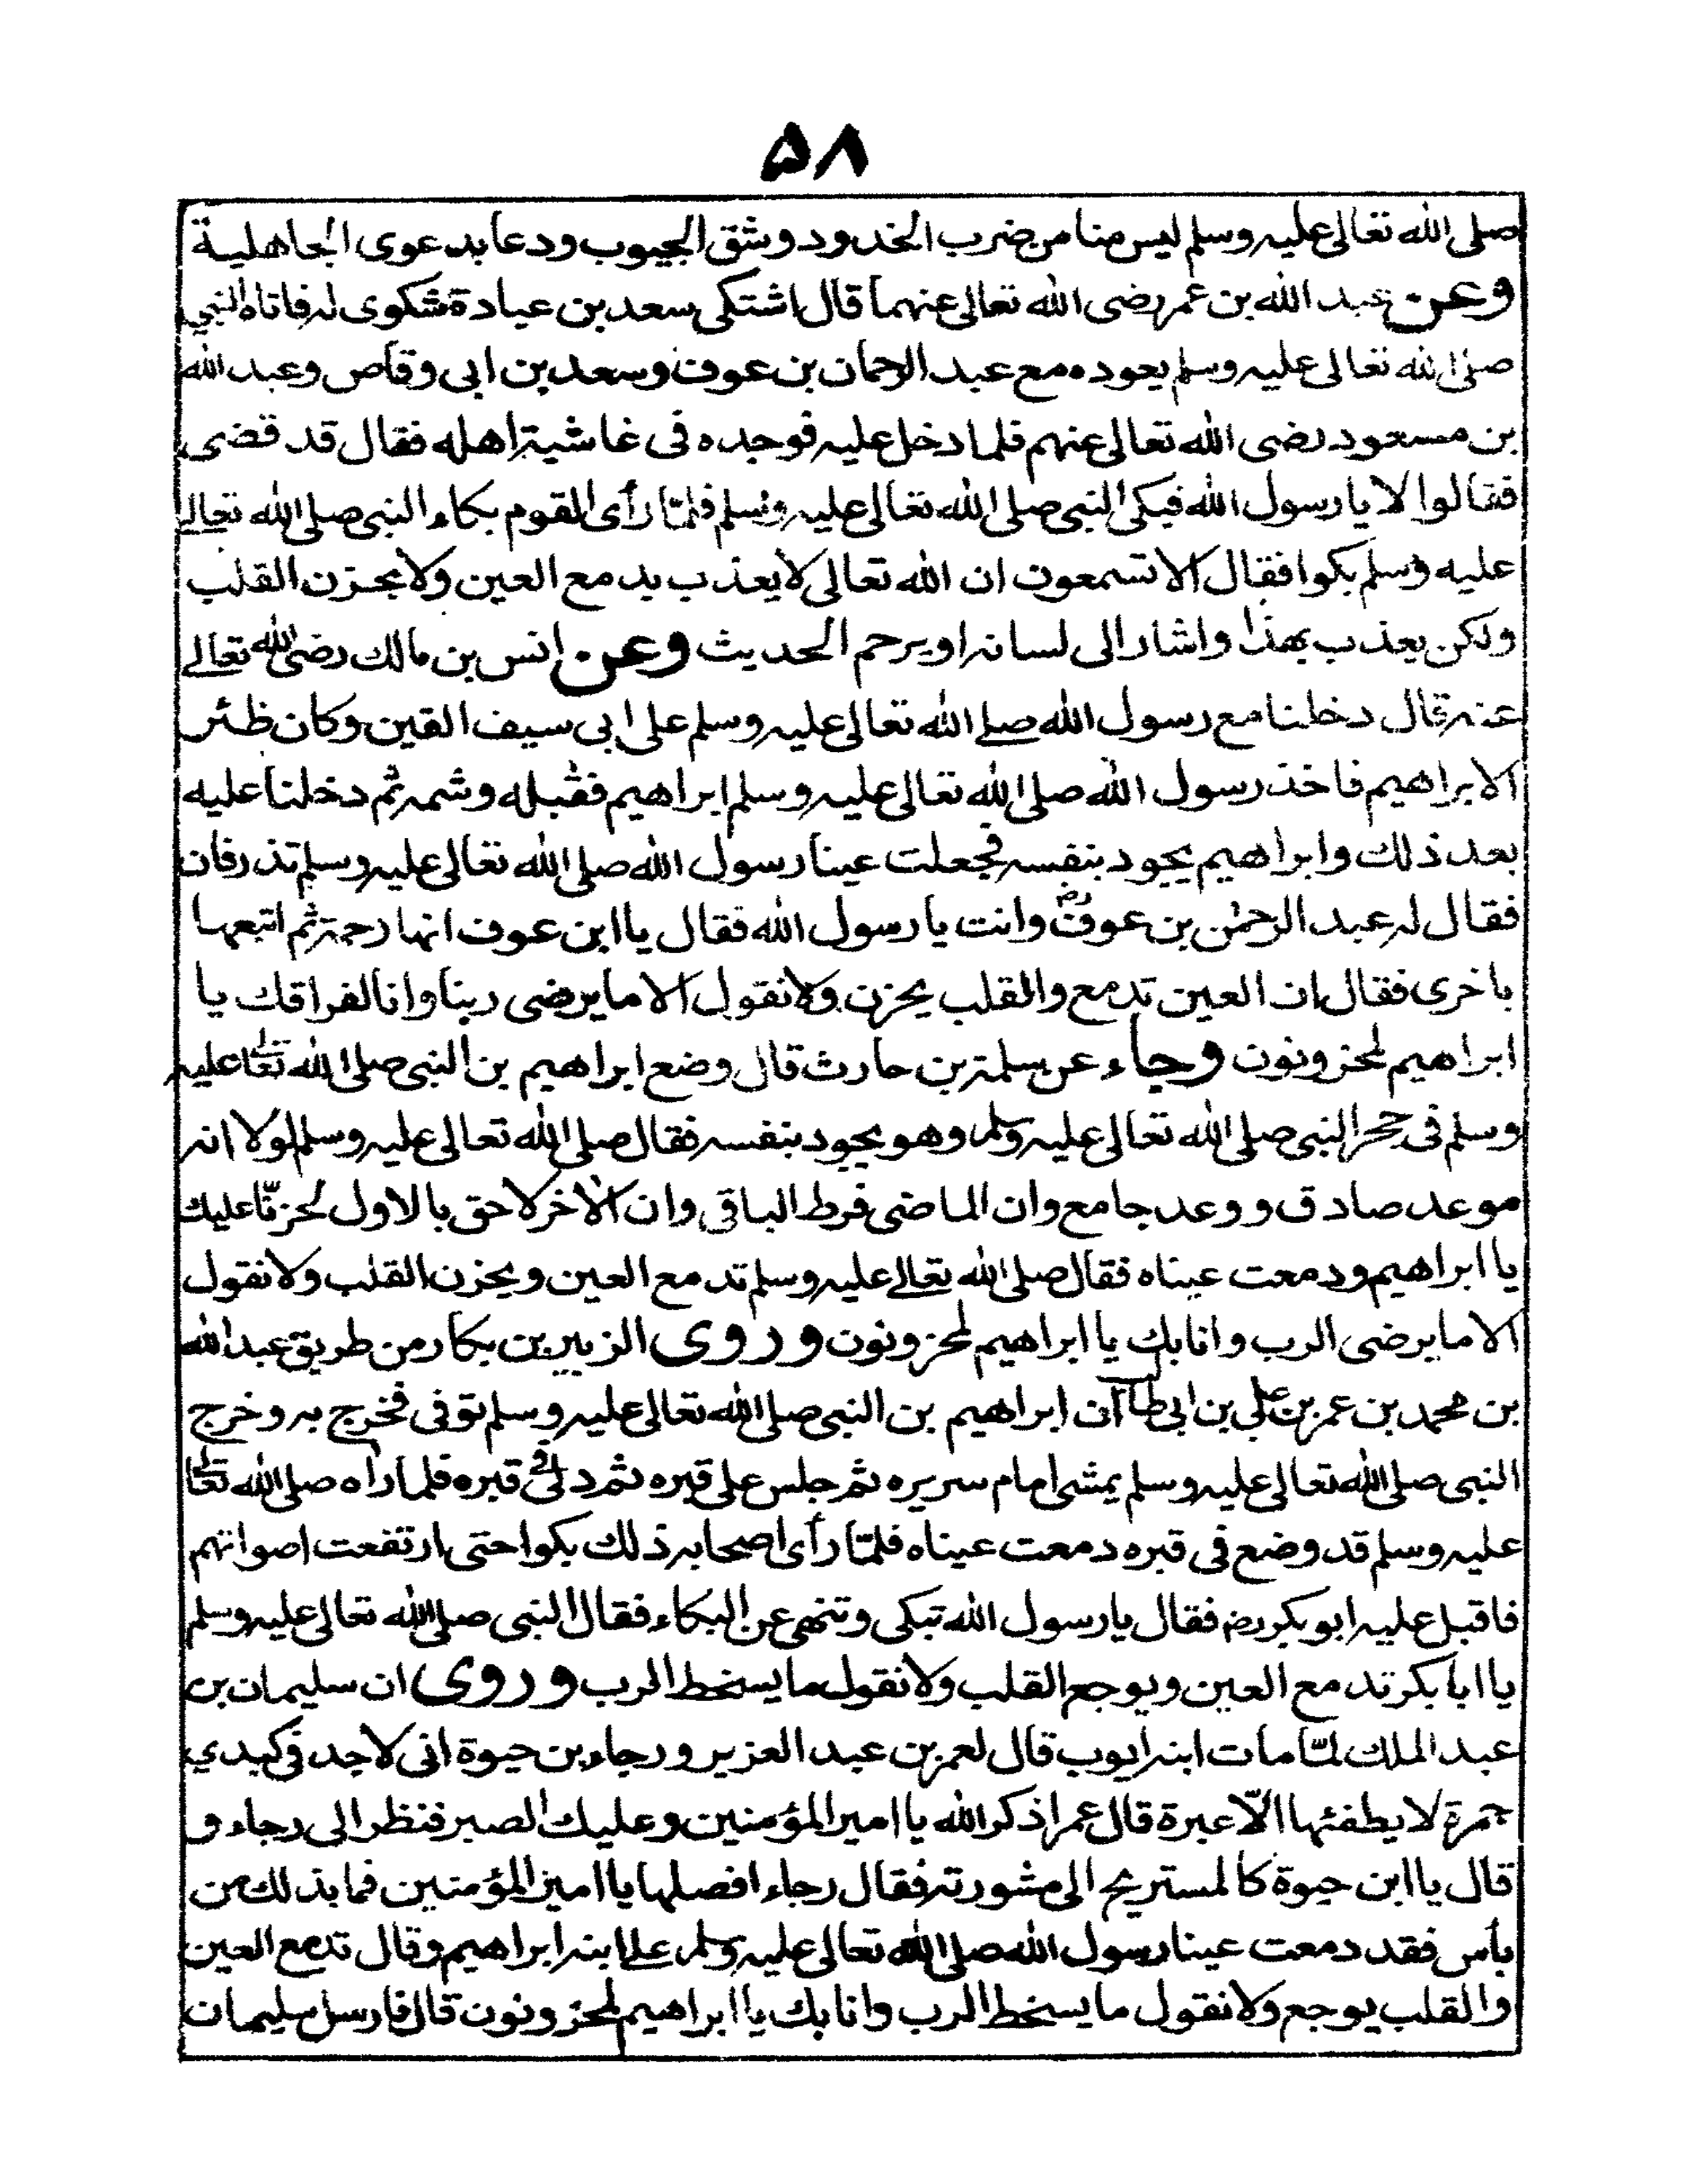 ۵۸
صلى الله تعالى عليه وسلم ليس منا من ضرب الخدود وشق الجيوب ودعا بدعوى الجاهلية
وعن عبد الله بن عمر رضى الله تعالى عنهما قال اشتكى سعد بن عبادة شكوى له فاتاه النبي
صلى الله تعالى عليه وسلم يعوده مع عبد الرحمان بن عوف وسعد بن ابى وقاص وعبد الله
بن مسعود رضى الله تعالى عنهم فلما دخل عليه فوجده فى غاشية اهله فقال قد قضى
فقالوا لا يا رسول الله فبكى النبى صلى الله تعالى عليه وسلم فلمّا رأى القوم بكاء النبى صلى الله تعالے
عليه وسلم بكوا فقال الا تسمعون ان الله تعالى لا يعذب بدمع العين ولا بحزن القلب
ولكن يعذب بهذا واشار الى لسانه او يرحم الحديث وعن انس بن مالك رضى الله تعالے
عنه قال دخلنا مع رسول الله صلے الله تعالى عليه وسلم على ابى سيف القين وكان ظئر
الابراهيم فاخذ رسول الله صلى الله تعالى عليه وسلم ابراهيم فقبله وشمه ثم دخلنا عليه
بعد ذلك وابراهيم يجود بنفسه فجعلت عينا رسول الله صلى الله تعالى عليه وسلم تذرفان
فقال له عبد الرحمٰن بن عوفؓ وانت يا رسول الله فقال يا ابن عوف انها رحمة ثم اتبعها
باخرى فقال ان العين تدمع والقلب يحزن ولا نقول الا ما يرضى ربنا وانا لفراقك يا
ابراهيم لمحزونون وجاء عن سلمة بن حارث قال وضع ابراهيم بن النبى صلى الله تعالى عليه
وسلم فى حجر النبى صلى الله تعالى عليه وسلم وهو يجود بنفسه فقال صلى الله تعالى عليه وسلم لولا انه
موعد صادق ووعد جامع وان الماضى فرط الباقى وان الاخر لاحق بالاول لحزنّا عليك
يا ابراهيم ودمعت عيناه فقال صلى الله تعالے عليه وسلم تدمع العين ويحزن القلب ولا نقول
الا ما يرضى الرب وانا بك يا ابراهيم لمحزونون وروى الزبير بن بكار من طريق عبد الله
بن محمد بن عمر بن على بن ابى طالب ان ابراهيم بن النبى صلى الله تعالى عليه وسلم توفى فخرج به وخرج
النبى صلى الله تعالى عليه وسلم يمشى امام سريره ثم جلس على قبره ثم دلى فى قبره فلما راه صلى الله تعالى
عليه وسلم قد وضع فى قبره دمعت عيناه فلمّا رأى اصحابه ذلك بكوا حتى ارتفعت اصواتهم
فاقبل عليه ابو بكر رض فقال يا رسول الله تبكى وتنهى عن البكاء فقال النبى صلى الله تعالى عليه وسلم
يا ابا بكر تدمع العين ويوجع القلب ولا نقول ما يسخط الرب وروى ان سليمان بن
عبد الملك لمّا مات ابنه ايوب قال لعمر بن عبد العزيز ورجاء بن حيوة انى لاجد فى كبدي
جمرة لا يطفئها الّا عبرة قال عمر اذكر الله يا امير المؤمنين وعليك الصبر فنظر الى رجاء و
قال يا ابن حيوة كالمستريح الى مشورته فقال رجاء افصلها يا امير المؤمنين فما بذلك من
بأس فقد دمعت عينا رسول الله صلى الله تعالى عليه وسلم علے ابنه ابراهيم وقال تدمع العين
والقلب يوجع ولا نقول ما يسخط الرب وانا بك يا ابراهيم لمحزونون قال فارسل سليمان